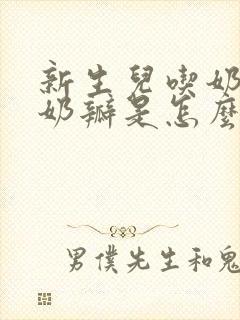 新生兒喫奶
奶瓣是怎麼
男僕先生和鬼